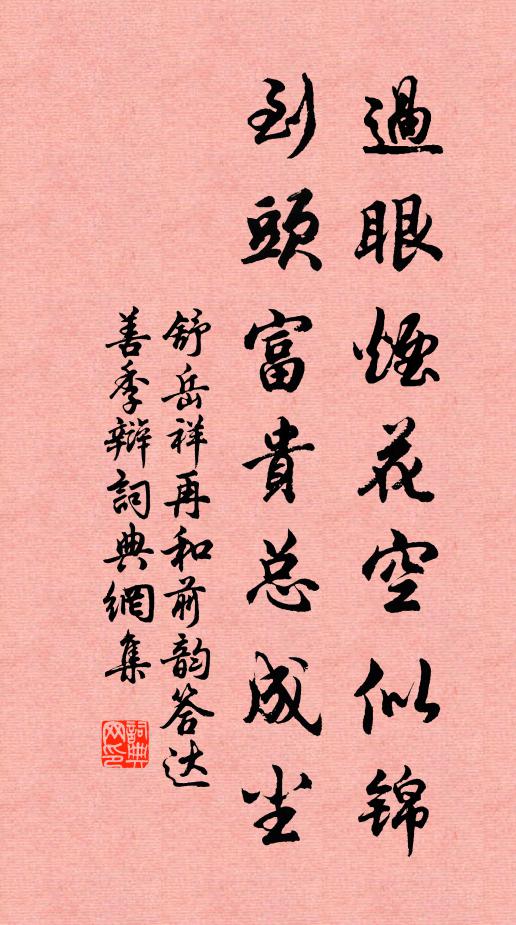 過眼煙花空似锦
到頭富貴总成尘
舒岳祥再和前韵答达
善季辩詞典網集
詞典
网印